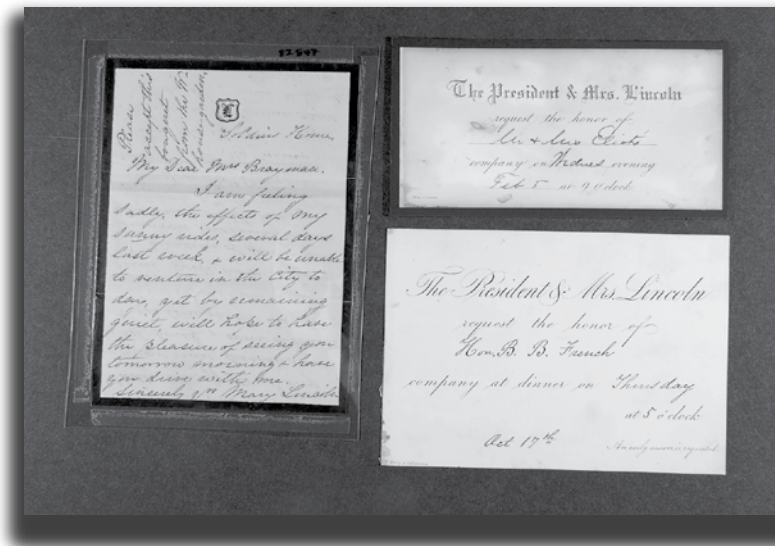 82547
Please
accept this
bouquet
from the W.
house garden,
Soldiers Home,
My Dear Mrs Brayman.
I am feeling
sadly, the effects of my
sunny rides, several days
last week, & will be unable
to venture in the City to
day, yet by remaining
quiet, will hope to have
the pleasure of seeing you
tomorrow morning & have
you drive with me.
Sincerely yrs Mary Lincoln
The President & Mrs. Lincoln
request the honor of
Mr & Mrs Eliots
company on Wednes evening
Feb 5 at 9 O'clock
The President & Mrs. Lincoln
request the honor of
Hon. B. B. French
company at dinner on Thursday
at 5 o'clock
Oct 17th
An early answer is requested.